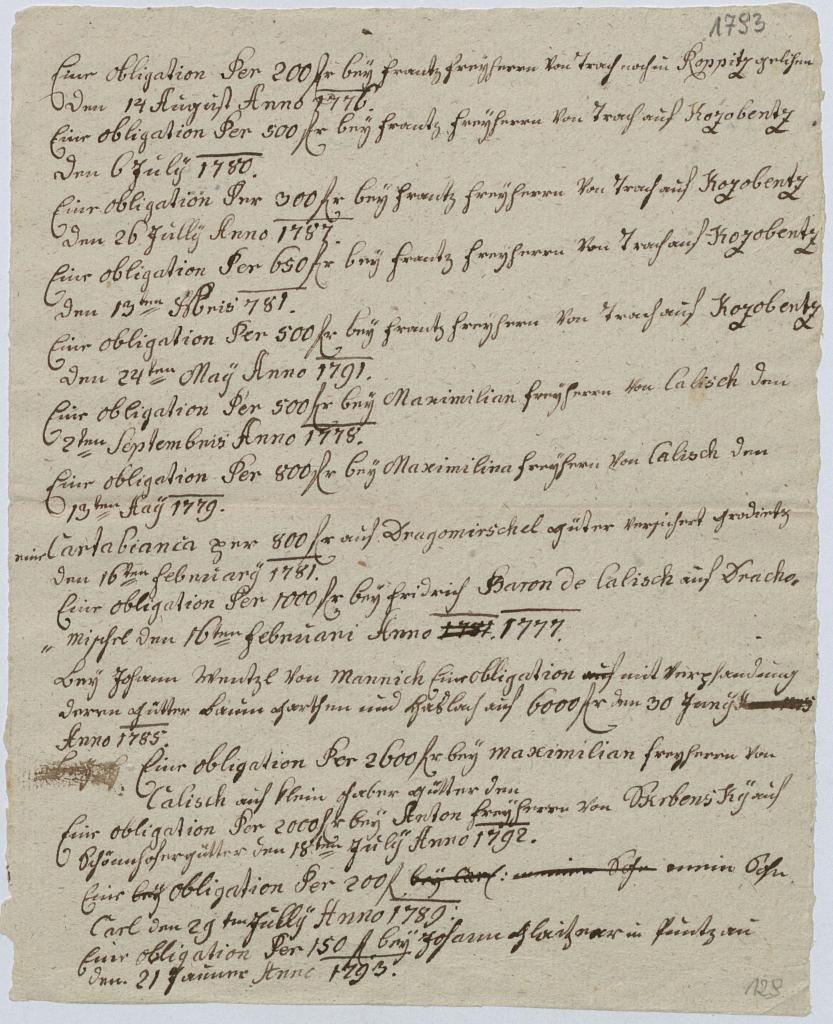 1793
Eine obligation Per 200 fr bey frantz freyherrn von Trach noch in Koppitz gelihen
den 14 August Anno 1776.
Eine obligation Per 500 fr bey frantz freyherrn von Trach auf Kozobentz
den 6 July 1780.
Eine obligation Per 300 fr bey frantz freyherrn von Trach auf Kozobentz
den 26 Jully Anno 1787.
Eine obligation Per 650 fr bey frantz freyherrn von Trach auf Kozobentz
den 13ten 781.
Eine obligation Per 500 fr bey frantz freyhern von Trach auf Kozobentz
den 24ten May Anno 1791.
Eine obligation Per 500 fr bey Maximilian freyherrn von Calisch den
2ten Septembris Anno 1778.
Eine obligation Per 800 fr bey Maximilina freyhern von Calisch den
13ten May 1779.
eine Cartabianca per 800 fr auf Dragomirschel güter versichert grodietz
den 16ten February 1781.
Eine obligation Per 1000 fr bey fridrich Baron de Calisch auf Dracho,
„ mischel den 16ten februari Anno 1781. 1777.
bey Johann Wentzl von Mannich Eine obligation auf mit verphandung
deren gütter baum garthen und Haslach auf 6000 fr den 30 Juny
Anno 1785.
Eine obligation Per 2600 fr bey maximilian freyherrn von
Calisch auf klein gaber gütter den
Eine obligation Per 2000 fr bey Anton freyherrn von Skrbensky auf
Schönnhofergütter den 18ten July Anno 1792.
Eine bey obligation Per 200 f bey Carl: meinen Sohn mein Sohn
Carl den 29ten Jully Anno 1789:
Eine obligation Per 150 f bey Johann in Puntzau
den 21 Janner Anno 1793.
128